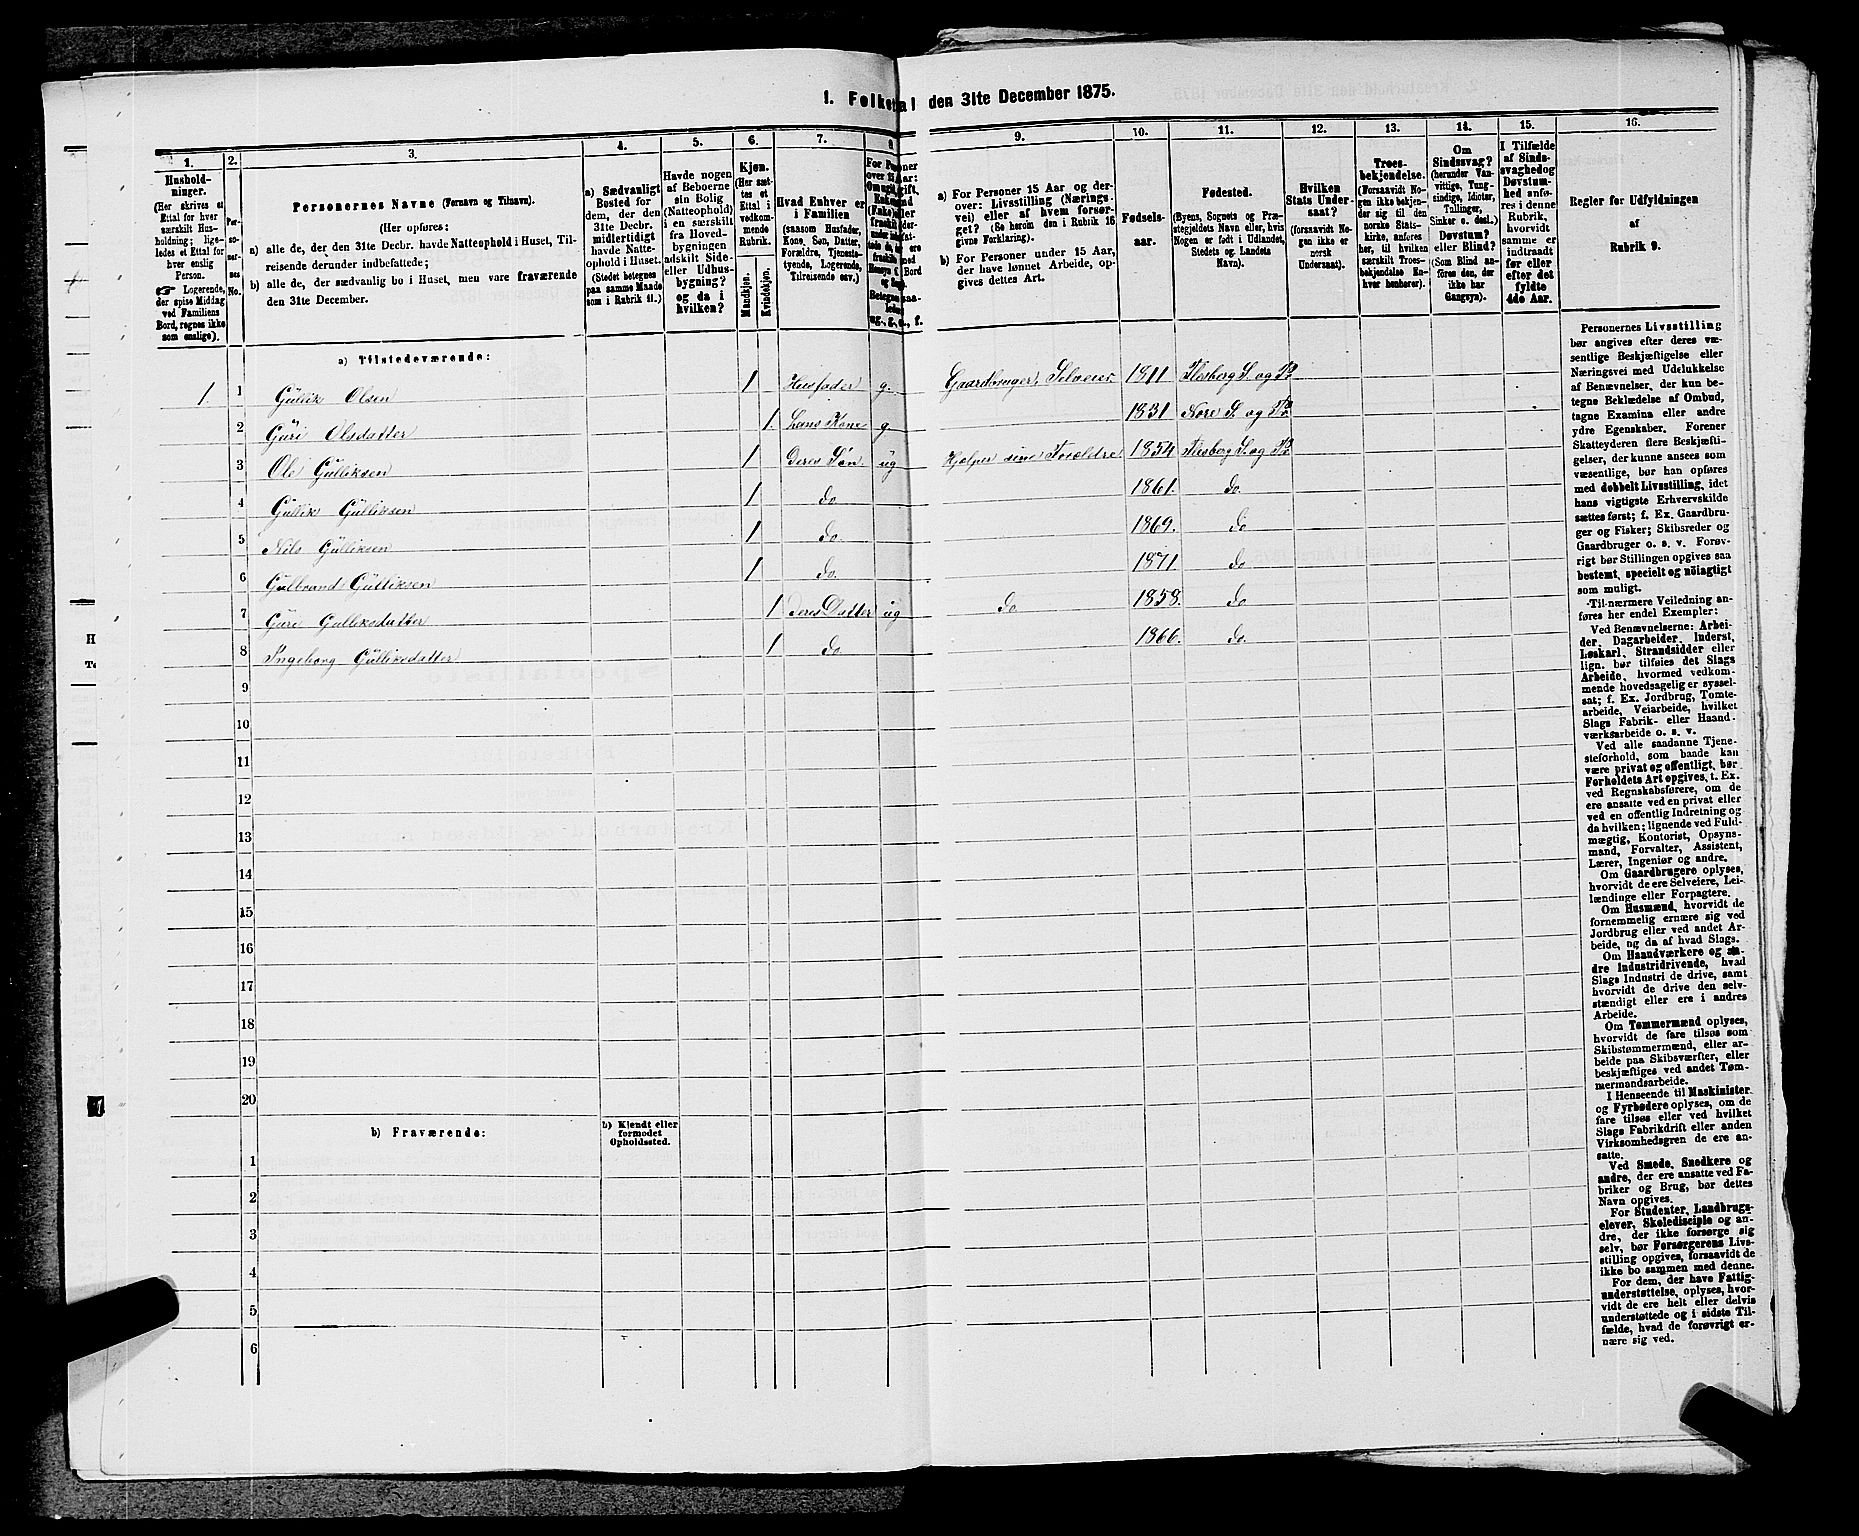 1. Folketal den 31te December 1875.
1.
2.
3.
4.
5.
6.
7.
8.
9.
10.
11.
12.
13.
14.
15.
16.
Hushold-
ninger.
(Her skrives et
Ettal for hver
særskilt Hus-
holdning; lige-
ledes et Ettal for
hver enslig
Person.
☞ Logerende,
der spise Middag
ved Familiens
Bord, regnes ikke
som enslige).
Per-
so-
ner-
nes
No.
Personernes Navne (Fornavn og Tilnavn).
(Her opføres:
a) alle de, der den 31te Decbr. havde Natteophold i Huset, Til-
reisende derunder indbefattede;
b) alle de, der sædvanlig bo i Huset, men vare fraværende
den 31te December.
a) Sædvanligt
Bosted for
dem, der den
31te Decbr.
midlertidigt
havde Natte-
ophold i Huset.
(Stedet betegnes
paa samme Maade
som i Rubrik 11.)
Havde nogen
af Beboerne
sin Bolig
(Natteophold)
i en særskilt
fra Hoved-
bygningen
adskilt Side-
eller Udhus-
bygning?
og da i
hvilken?
Kjøn.
(Her sæt-
tes et
Ettal i
vedkom-
mende
Rubrik.
Mandkjøn.
Kvindekjøn.
Hvad Enhver er
i Familien
(saasom Husfader,
Kone, Søn, Datter,
Forældre, Tjeneste-
tyende, Logerende,
Tilreisende osv.)
ug., g., e., f.
a) For Personer 15 Aar og der-
over: Livsstilling (Nærings-
vei) eller af hvem forsør-
get? (Se herom den i Rubrik 16
givne Forklaring).
b) For Personer under 15 Aar,
der have lønnet Arbeide, op-
gives dettes Art.
Fødsels-
aar.
Fødested.
(Byens, Sognets og Præ-
stegjeldets Navn eller, hvis
Nogen er født i Udlandet,
Stedets og Landets
Navn).
Hvilken
Stats Under-
saat?
(forsaavidt No-
gen ikke er
norsk
Undersaat).
Troes-
bekjendelse.
(Forsaavidt No-
gen ikke bekjen-
der sig til den
norske Stats-
kirke, anføres
her, til hvilken
særskilt Troes-
bekjendelse En-
hver henhører).
Om
Sindssvag?
(herunder Van-
vittige, Tung-
sindige, Idioter,
Tullinger,
Sinker o. desl.)
Døvstum?
eller Blind?
(Som Blind an-
føres den, der
ikke har
Gangsyn).
I Tilfælde
af Sinds-
svaghed og
Døvstum-
hed anfø-
res i denne
Rubrik,
hvorvidt
samme er
indtraadt
før eller
efter det
fyldte
4de Aar.
Regler for Udfyldningen
af
Rubrik 9.
a) Tilstedeværende:
1. 1 Gullik Olsen 1 Husfader g. Gaardbruger, Selveier 1811 Flesberg S. og P.
2 Guri Olsdatter 1. hans Kone g 1831 Nore S. og P.
3 Ole Gulliksen 1 deres Søn ug Hjelper sine Forældre 1854 Flesberg S. og P.
4 Gullik Gulliksen 1 do 1861. do.
5 Nils Gulliksen 1 do. 1869. do
6 Gulbrand Gulliksen 1 do. 1871 do
7 Guri Gulliksdatter 1 deres Datter ug do 1858. do
8 Ingeborg Gulliksdatter 1 do. 1866. do.
9
10
11
12
13
14
15
16
17
18
19
20
b) Fraværende:
b) Kjendt eller
formodet
Opholdssted.
1
2
3
4
5
6
Personernes Livsstilling
bør angives efter deres væ-
sentlige Beskjæftigelse eller
Næringsvei med Udelukkelse
af Benævnelser, der kun be-
tegne Beklædelse af Ombud,
tagne Examina eller andre
ydre Egenskaber. Forener
Skatteyderen flere Beskjæfti-
gelser, der kunne ansees som
væsentlige, bør han opføres
med dobbelt Livsstilling, idet
hans vigtigste Erhvervskilde
sættes først; f. Ex. Gaardbru-
ger og Fisker; Skibsreder og
Gaardbruger o. s. v. Forøv-
rigt bør Stillingen opgives saa
bestemt, specielt og nöiagtigt
som muligt.
Til nærmere Veiledning an-
føres her endel Exempler:
Ved Benævnelserne: Arbei-
der, Dagarbeider, Inderst,
Løskarl, Strandsidder eller
lign. bør tilføies det Slags
Arbeide, hvormed vedkom-
mende hovedsagelig er syssel-
sat; f. Ex. Jordbrug, Tomte-
arbeide, Veiarbeide, hvilket
Slags Fabrik- eller Haand-
værksarbeide o. s. v.
Ved alle saadanne Tjene-
steforhold, som baade kan
være privat og offentligt, bør
Forholdets Art opgives, t. Ex.
ved Regnskabsførere, om de
ere ansatte ved en privat eller
ved en offentlig Indretning og
da hvilken; lignende ved Fuld-
mægtig, Kontorist, Opsyns-
mand, Forvalter, Assistent,
Lærer, Ingeniør og andre.
Om Gaardbrugere oplyses,
hvorvidt de ere Selveiere, Lei-
lændinge eller Forpagtere.
Om Husmænd, hvorvidt de
fornemmelig ernære sig ved
Jordbrug eller ved andet Ar-
beide, og da af hvad Slags.
Om Haandværkere og an-
dre Industridrivende, hvad
Slags Industri de drive, samt
hvorvidt de drive den selv-
stændigt eller ere i andres
Arbeide.
Om Tømmermænd oplyses,
hvorvidt de fare tilsøs som
Skibstømmermænd, eller ar-
beide paa Skibsværfter, eller
beskjæftiges ved andet Tøm-
mermandsarbeide.
I Henseende til Maskinister
og Fyrbødere oplyses, om de
fare tilsøs eller ved hvilket
Slags Fabrikdrift eller anden
Virksomhedsgren de ere an-
satte.
Ved Smede, Snedkere og
andre, der ere ansatte ved Fa-
briker og Brug, bør dettes
Navn opgives.
For Studenter, Landbrugs-
elever, Skoledisciple og an-
dre, der ikke forsørge sig
selv, bør Forsørgerens Livs-
stilling opgives, forsaavidt de
ikke bo sammen med denne.
For dem, der have Fattig-
understøttelse, oplyses, hvor-
vidt de ere helt eller delvis
understøttede og i sidste Til-
fælde, hvad de forøvrigt er-
nære sig ved.